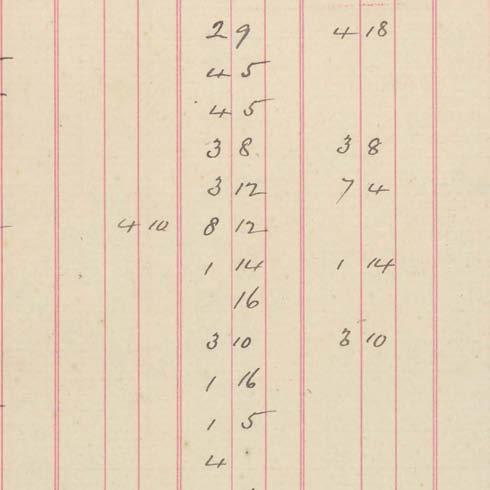 2 9 4 18
4 5
4 5
3 8 3 8
3 12 7 4
4 10 8 12
1 14 1 14
16
3 10 3 10
1 16
1 5
4